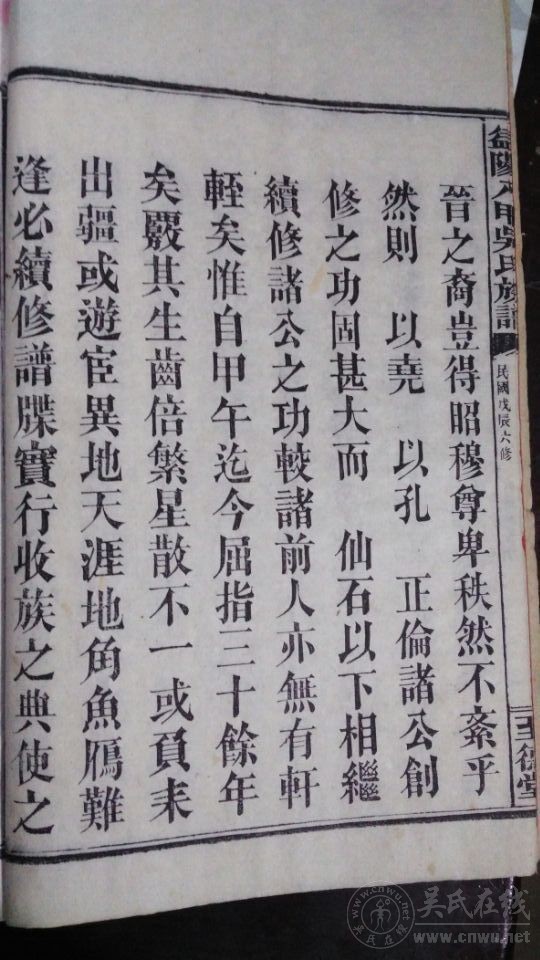 益陽八甲吳氏族譜
民國戊辰六修
至德堂
晉之裔豈得昭穆尊卑秩然不紊乎
然則 以堯 以孔 正倫諸公創
修之功固甚大而 仙石以下相繼
續修諸公之功較諸前人亦無有軒
輊矣惟自甲午迄今屈指三十餘年
矣覈其生齒倍繁星散不一或負耒
出疆或遊宦異地天涯地角魚鴈難
逢必續修譜牒實行收族之典使之
吳氏在线
www.cnwu.net